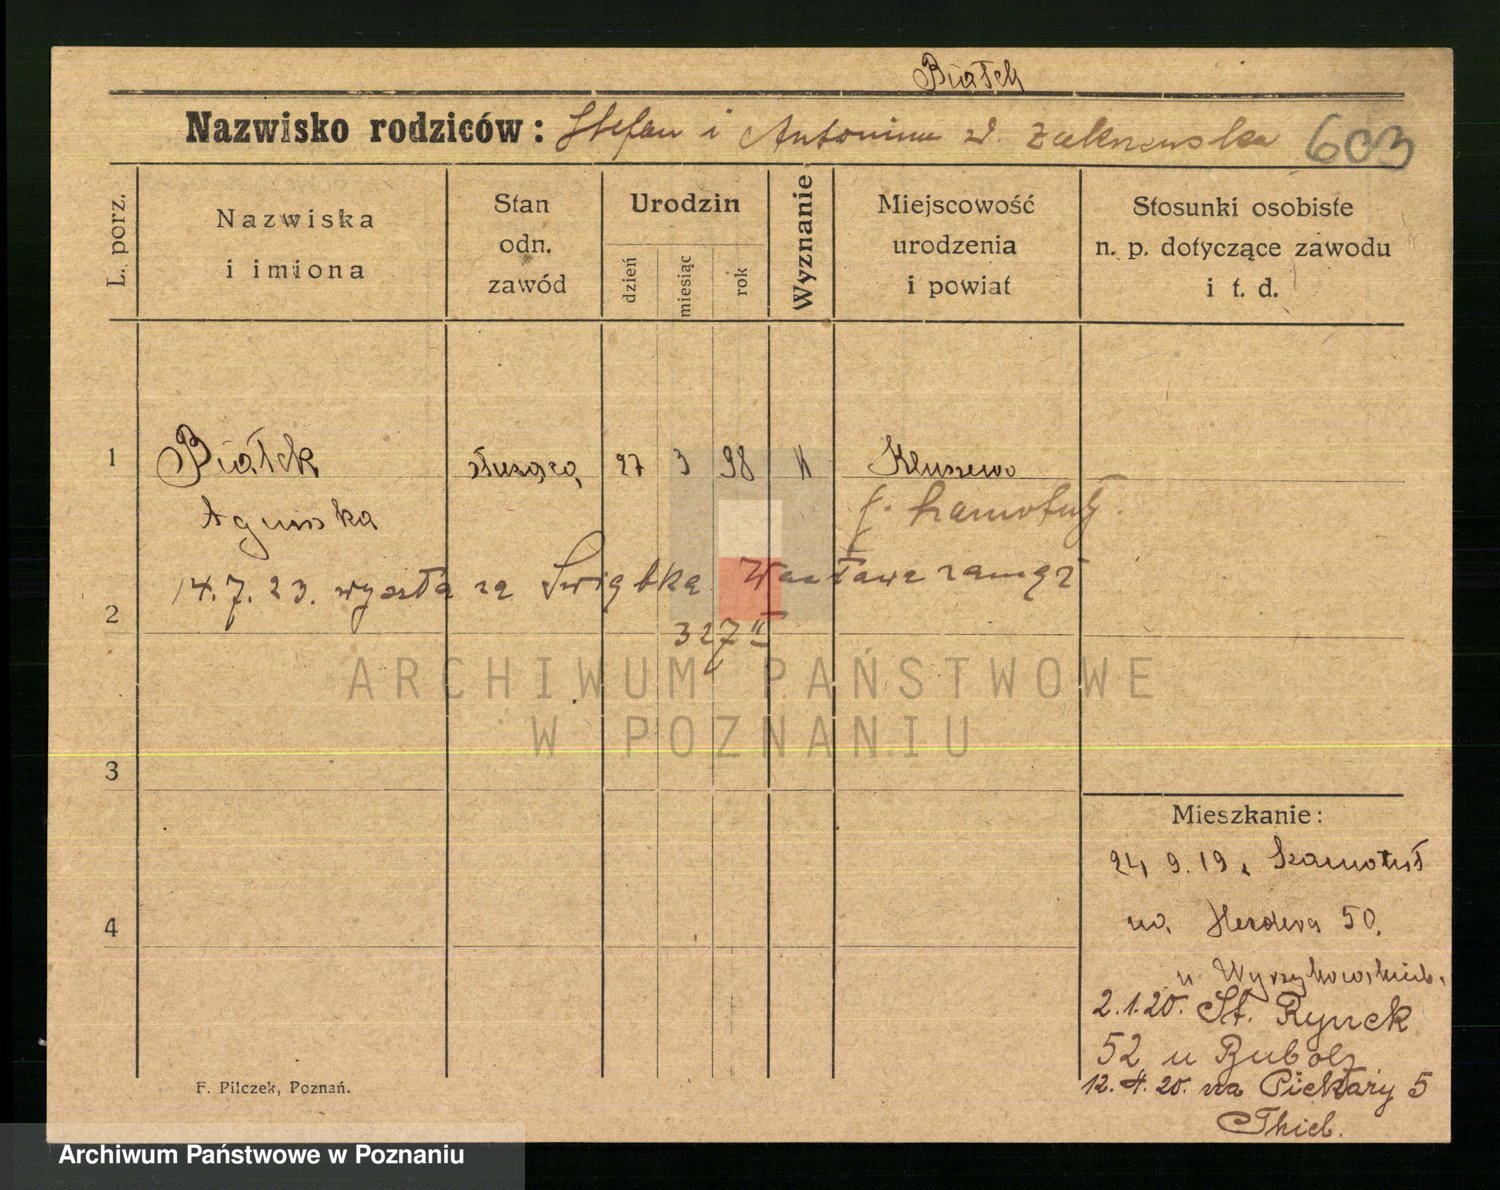 Białek
Nazwisko rodziców: Stefan i Antonina z d. Zakrzewska 603
L. porz.
Nazwiska
i imiona
Stan
odn.
zawód
Urodzin
dzień
miesiąc
rok
Wyznanie
Miejscowość
urodzenia
i powiat
Stosunki osobiste
n. p. dotyczące zawodu
i t. d.
1 Białek służąca 27 3 98 k Kluszewo
Agniska p. Szamotuły
14.7.23. wyszła za Świątka Wacława zamąż
2
327 II
ARCHIWUM PAŃSTWOWE
W POZNANIU
3
Mieszkanie:
24 9.19 z Szamotuł
na Herdera 50.
u Wyrzykowskich.
4
2.1.20. St. Rynek
52 u Bubolz
12.4.20. na Piekary 5
Thiel.
F. Pilczek, Poznań.
Archiwum Państwowe w Poznaniu